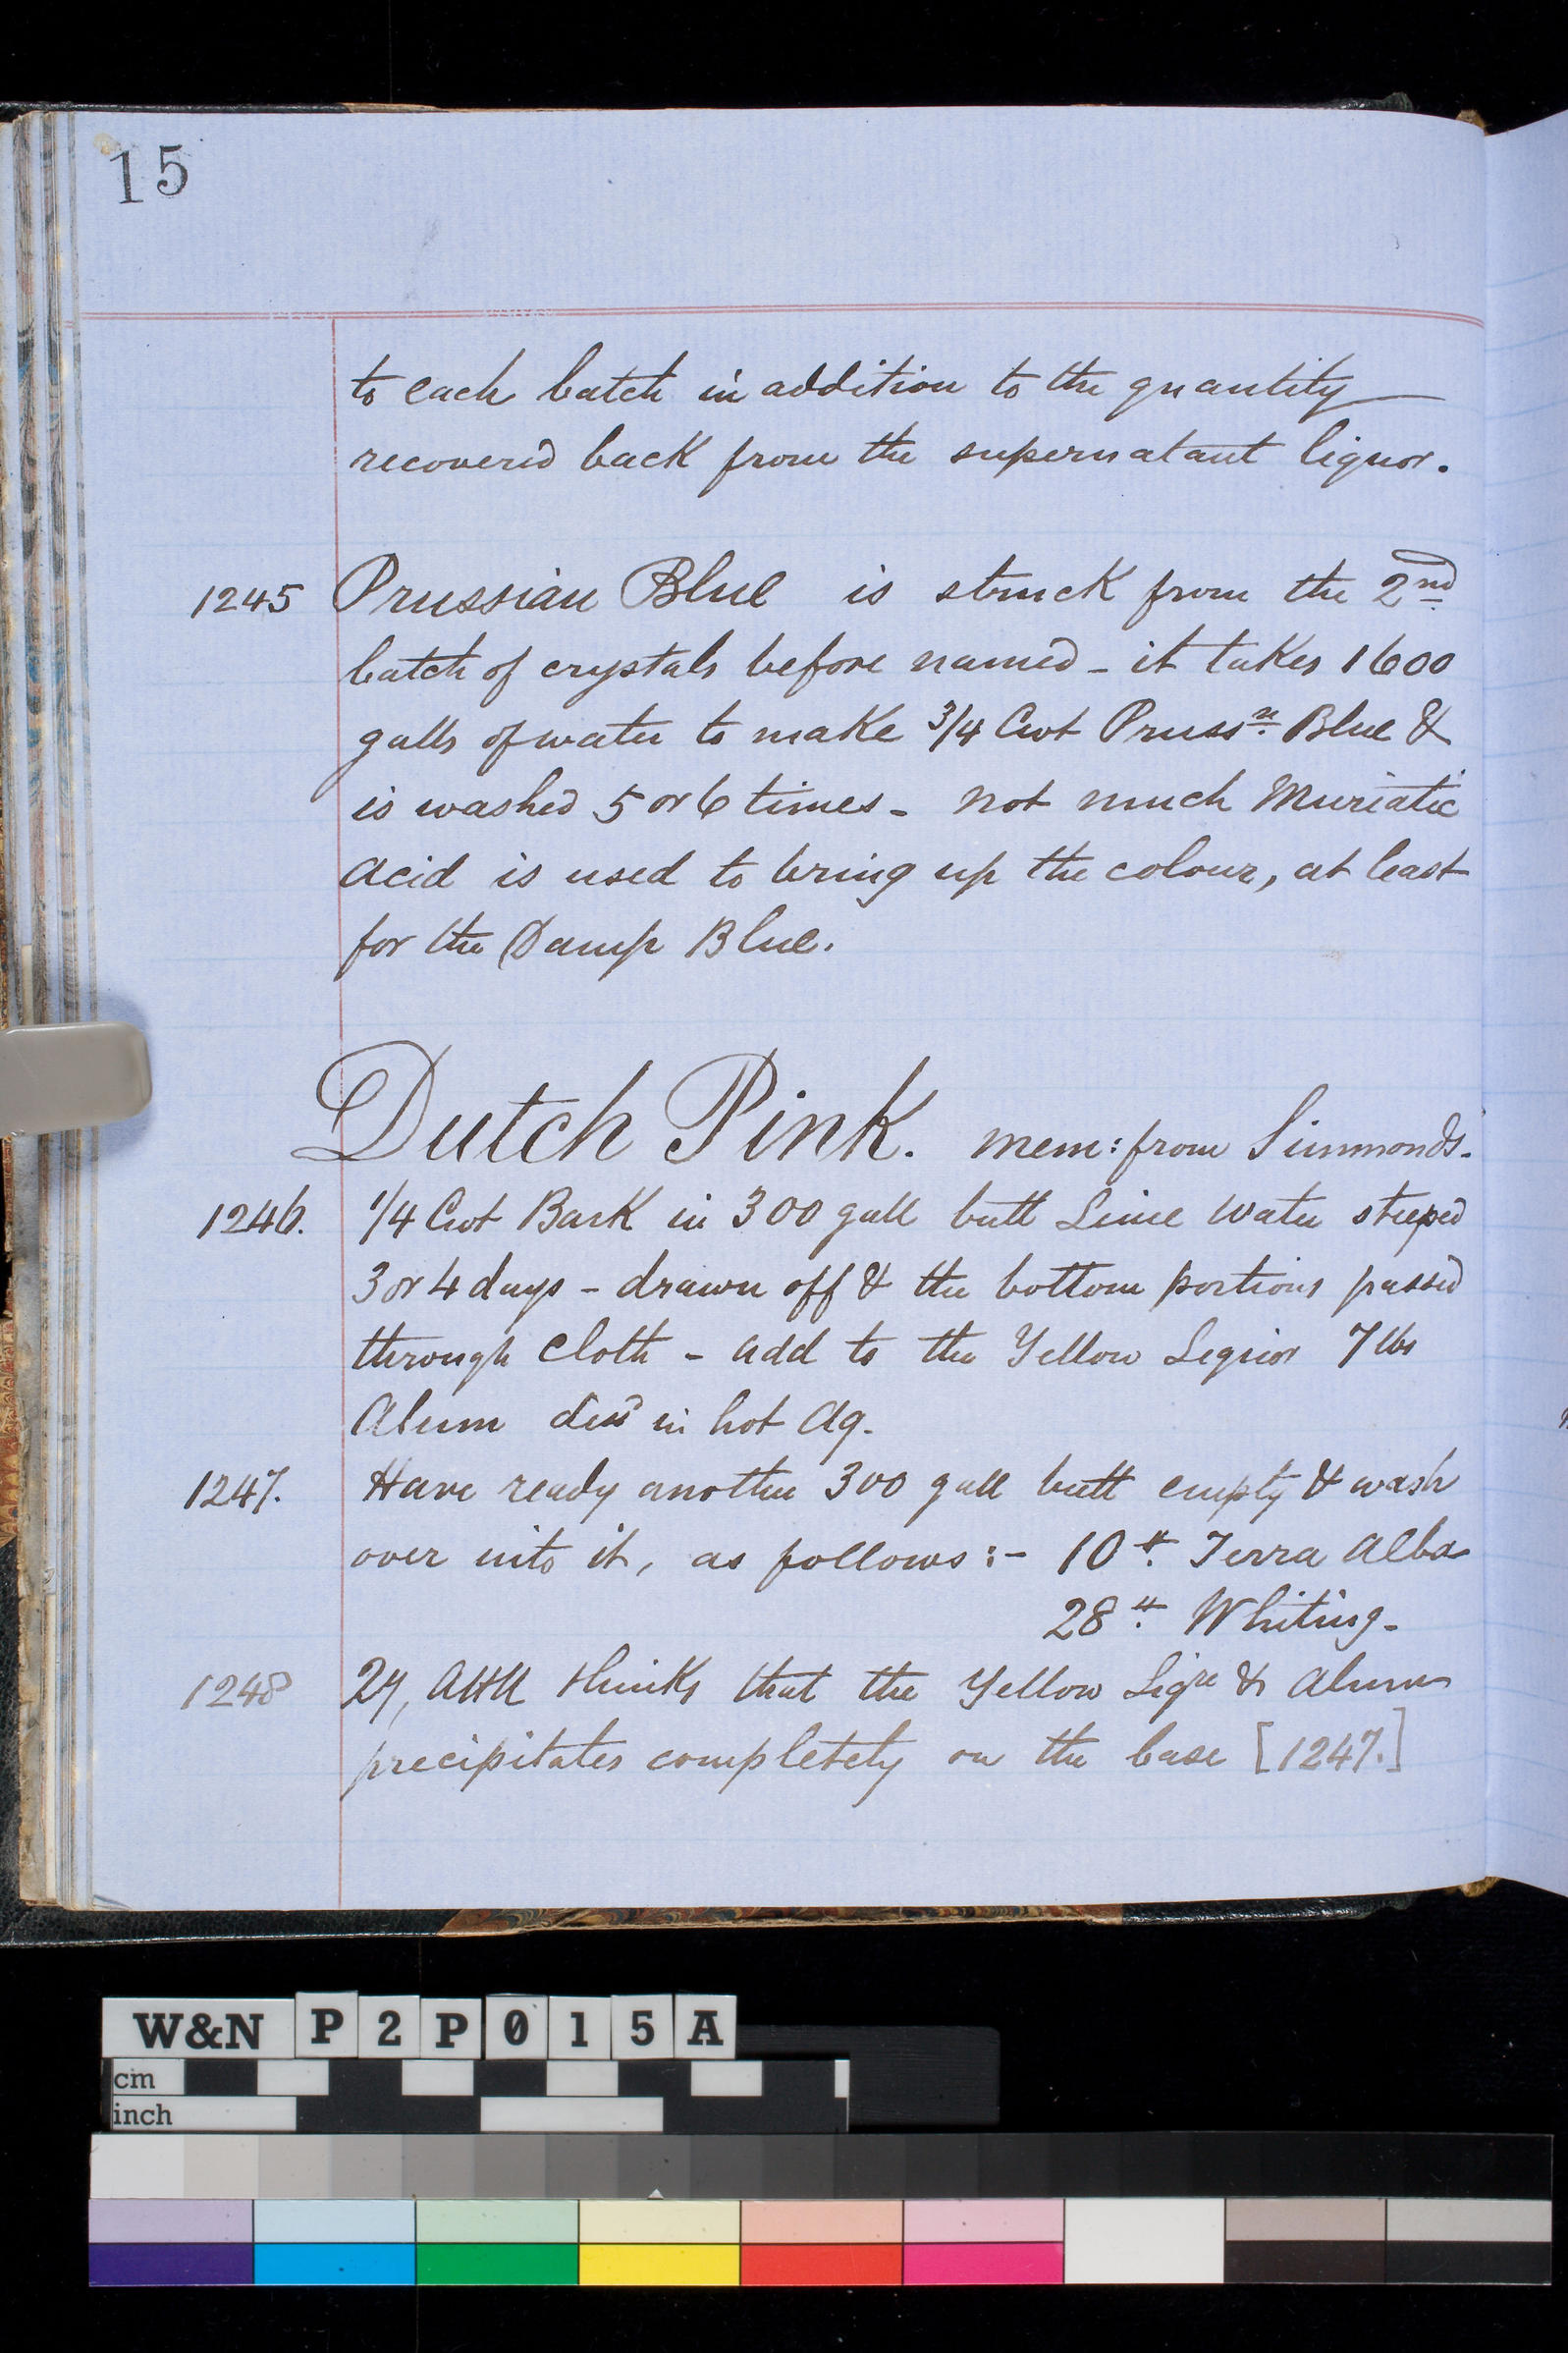 15
to each batch in addition to the quantity
recovered back from the supernatant liquor.
1245 Prussian Blue is struck from the 2nd
batch of crystals before named - it takes 1600
galls of water to make 3/4 Cwt Prussn Blue &
is washed 5 or 6 times - not much Muriatic
Acid is used to bring up the colour, at least
for the Damp Blue.
Dutch Pink. mem: from Simmonds.
1246. 1/4 Cwt Bark in 300 gall butt Lime Water steeped
3 or 4 days - drawn off & the bottom portions passed
through cloth - add to the Yellow Liquor 7 lbs
Alum dissd in hot Aq.
1247. Have ready another 300 gall butt empty & wash
over into it, as follows :- 10 #. Terra Alba
28 #. Whiting.
1248 thinks that the Yellow Liqre & Alum
precipitates completely on the base [1247.]
W&N P2P015A
cm
inch